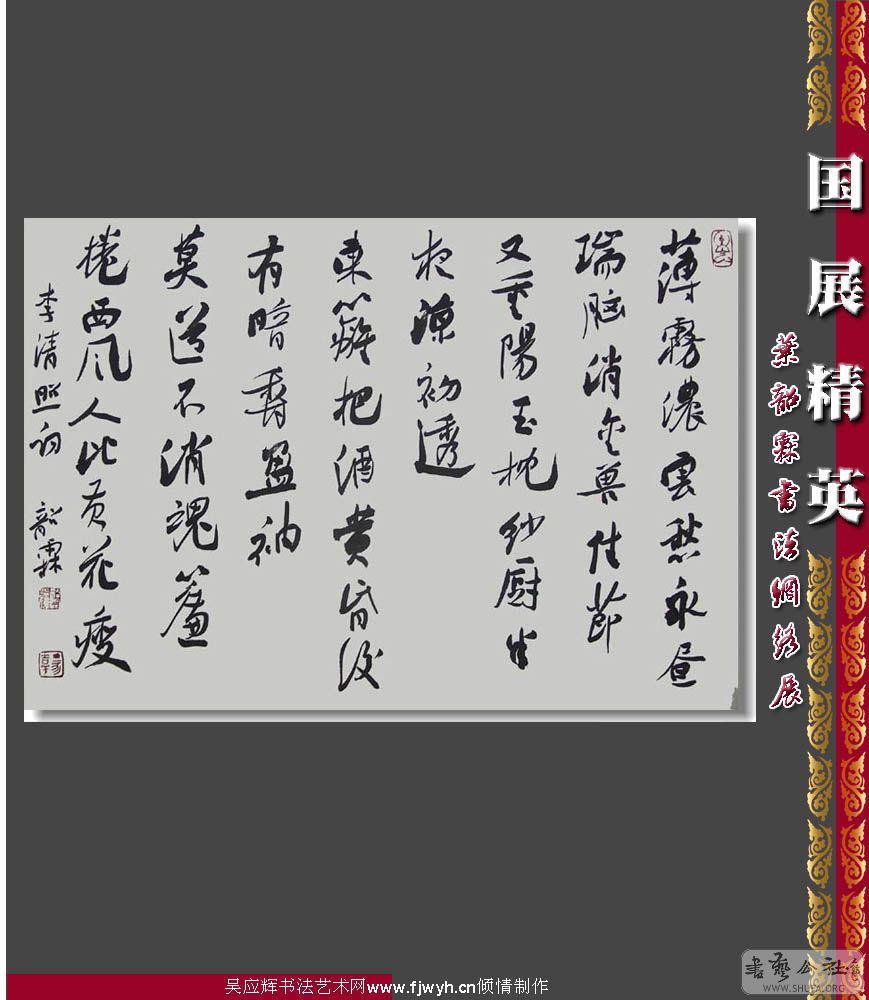 国展精英
葉韶霖書法網络展
薄霧濃雲愁永昼
瑞脑消金兽佳节
又重陽玉枕纱厨半
夜凉初透
東籬把酒黄昏後
有暗香盈袖
莫道不消魂簾
捲西风人比黄花瘦
李清照词 韶霖
書藝公社
WWW.SHUFA.ORG
吴应辉书法艺术网www.fjwyh.cn倾情制作